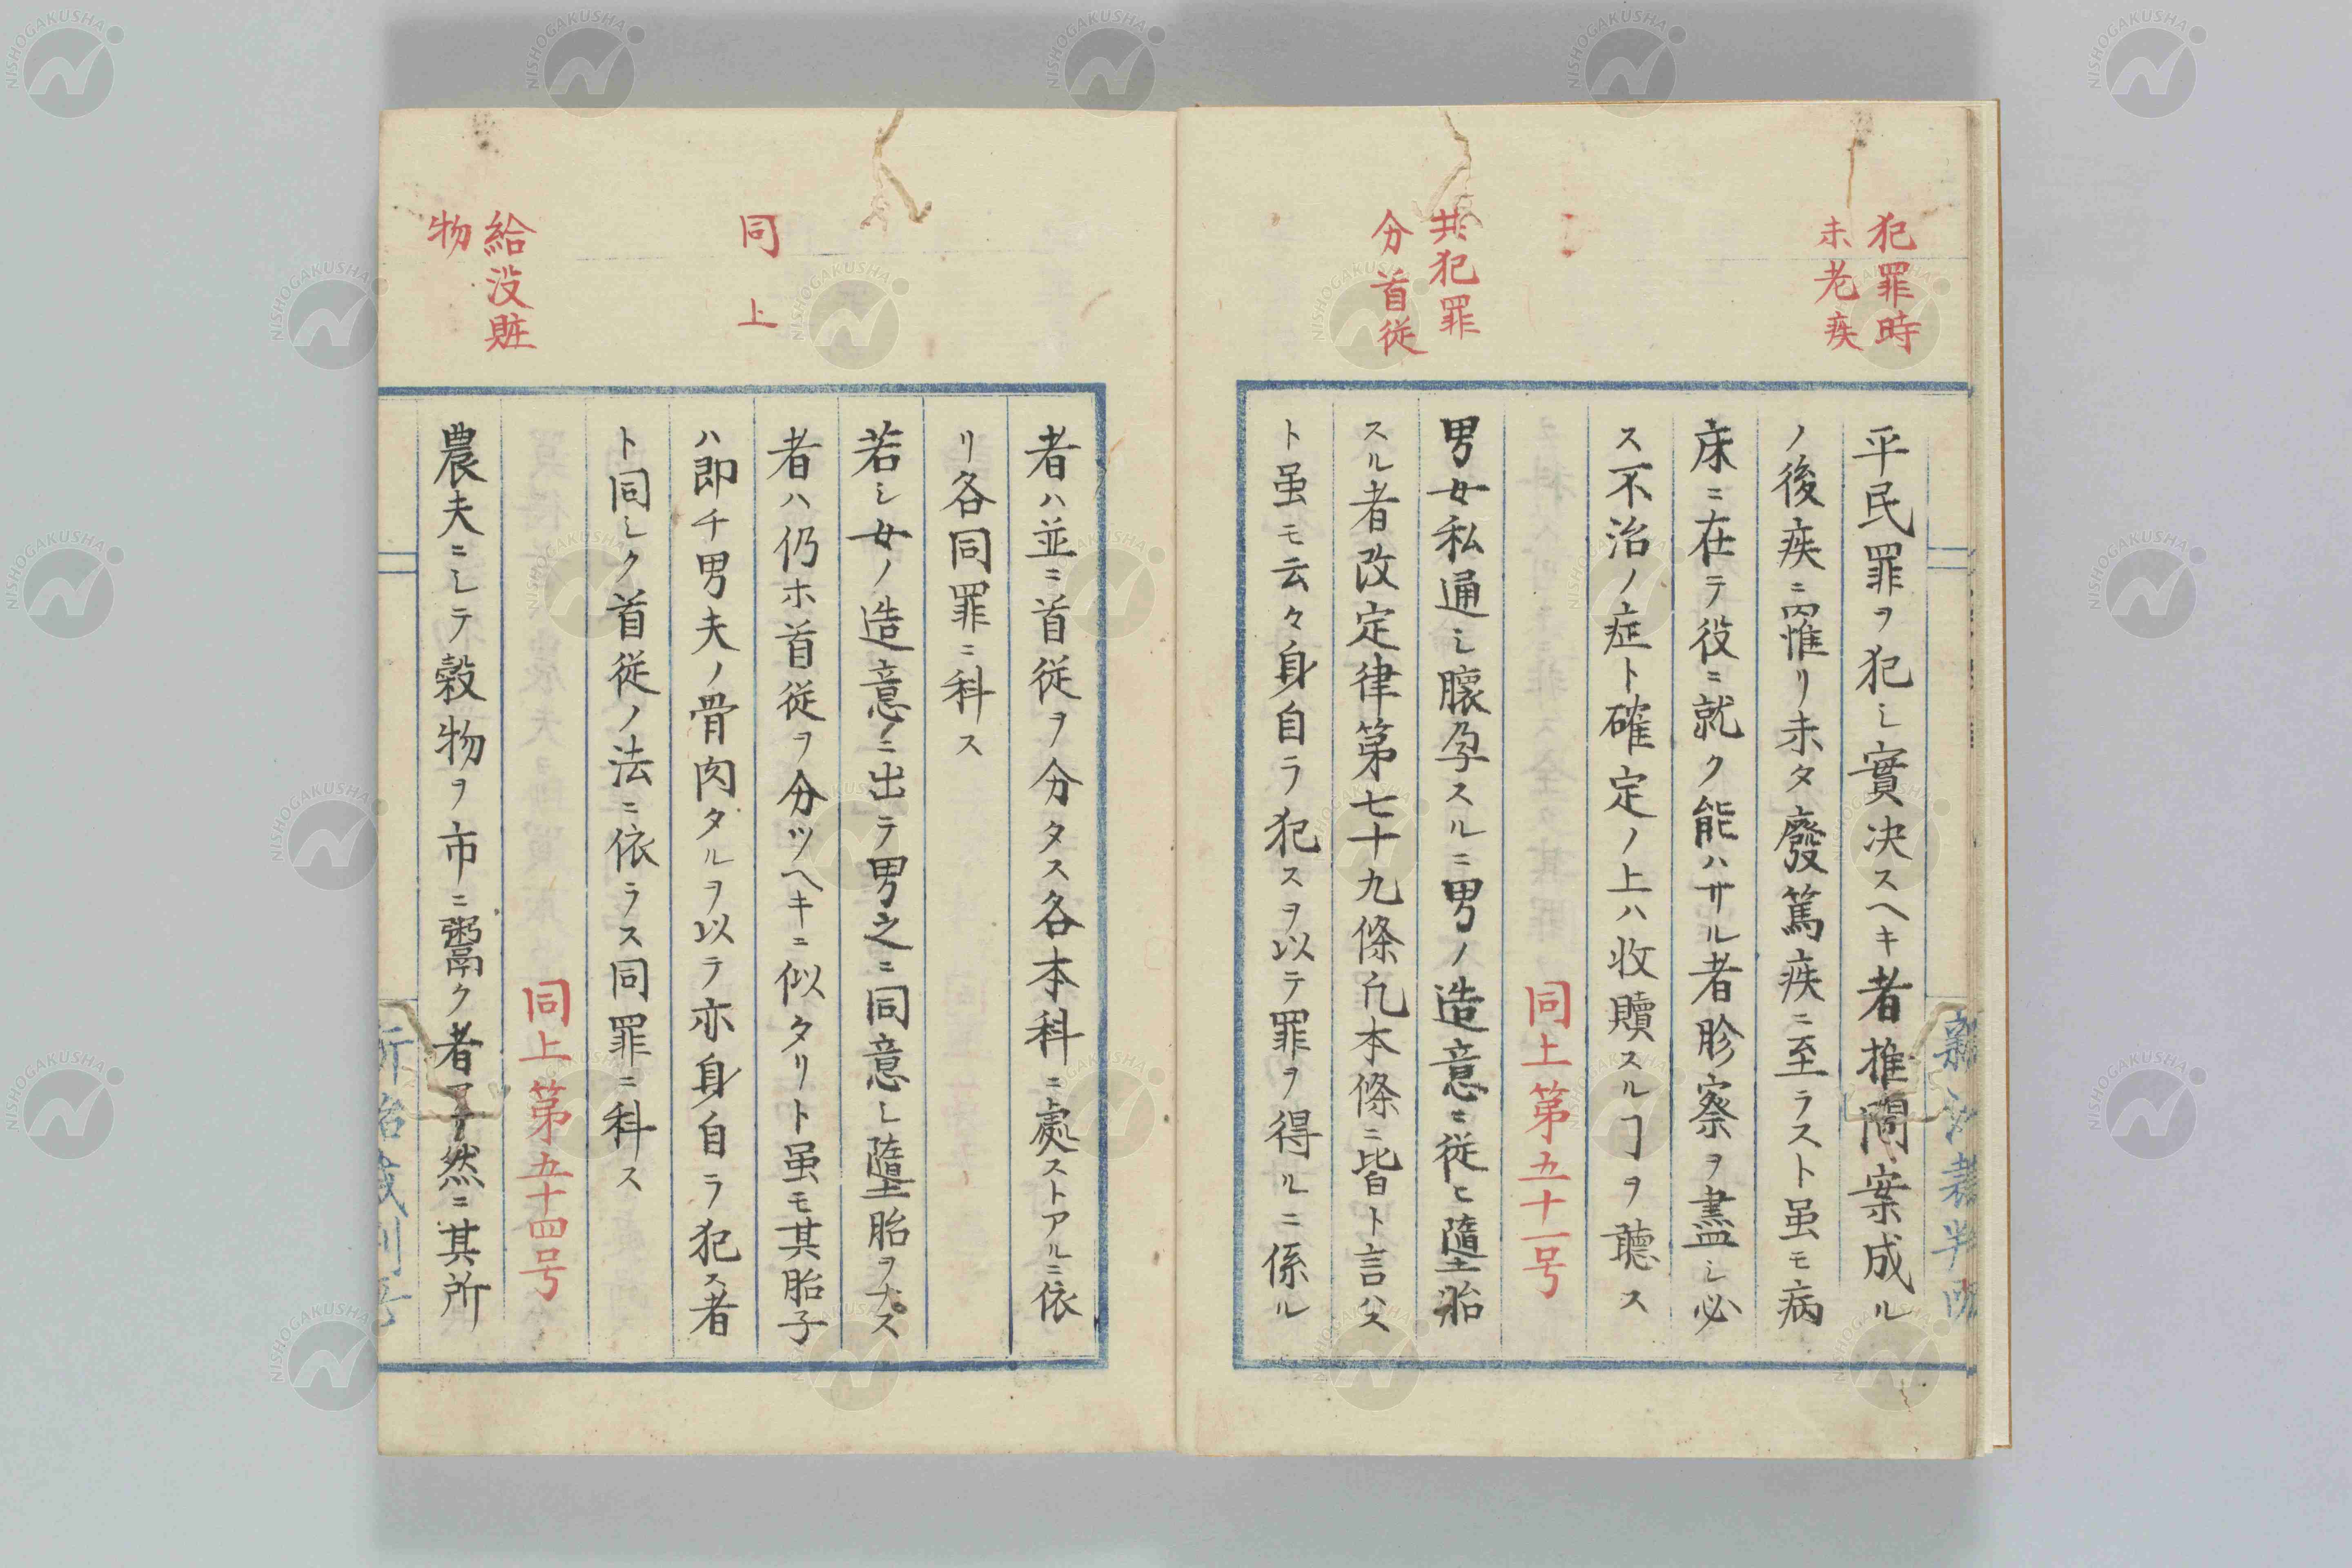 犯罪時
未老疾
平民罪ヲ犯シ實决スヘキ者推問案成ル
ノ後疾ニ罹リ未タ廢篤疾ニ至ラスト虽モ病
床ニ在テ役ニ就ク能ハサル者胗察ヲ盡シ必
ス不治ノ症ト確定ノ上ハ收贖スルヿヲ聽ス
同上第五十一号
共犯罪
分首従
男女私通シ懐孕スルニ男ノ造意ニ従ヒ墮胎
スル者改定律第七十九條凢本條ニ皆ト言ハス
ト虽モ云々身自ラ犯スヲ以テ罪ヲ得ルニ係ル
者ハ並ニ首従ヲ分タス各本科ニ處ストアルニ依
リ各同罪ニ科ス
同上
若シ女ノ造意ニ出テ男之ニ同意シ墮胎ヲナス
者ハ仍ホ首従ヲ分ツヘキニ似タリト虽モ其胎子
ハ即チ男夫ノ骨肉タルヲ以テ亦身自ラ犯ス者
ト同シク首従ノ法ニ依ラス同罪ニ科ス
同上第五十四号
給没賍
物
農夫ニシテ穀物ヲ市ニ鬻ク者孑然ニ其所